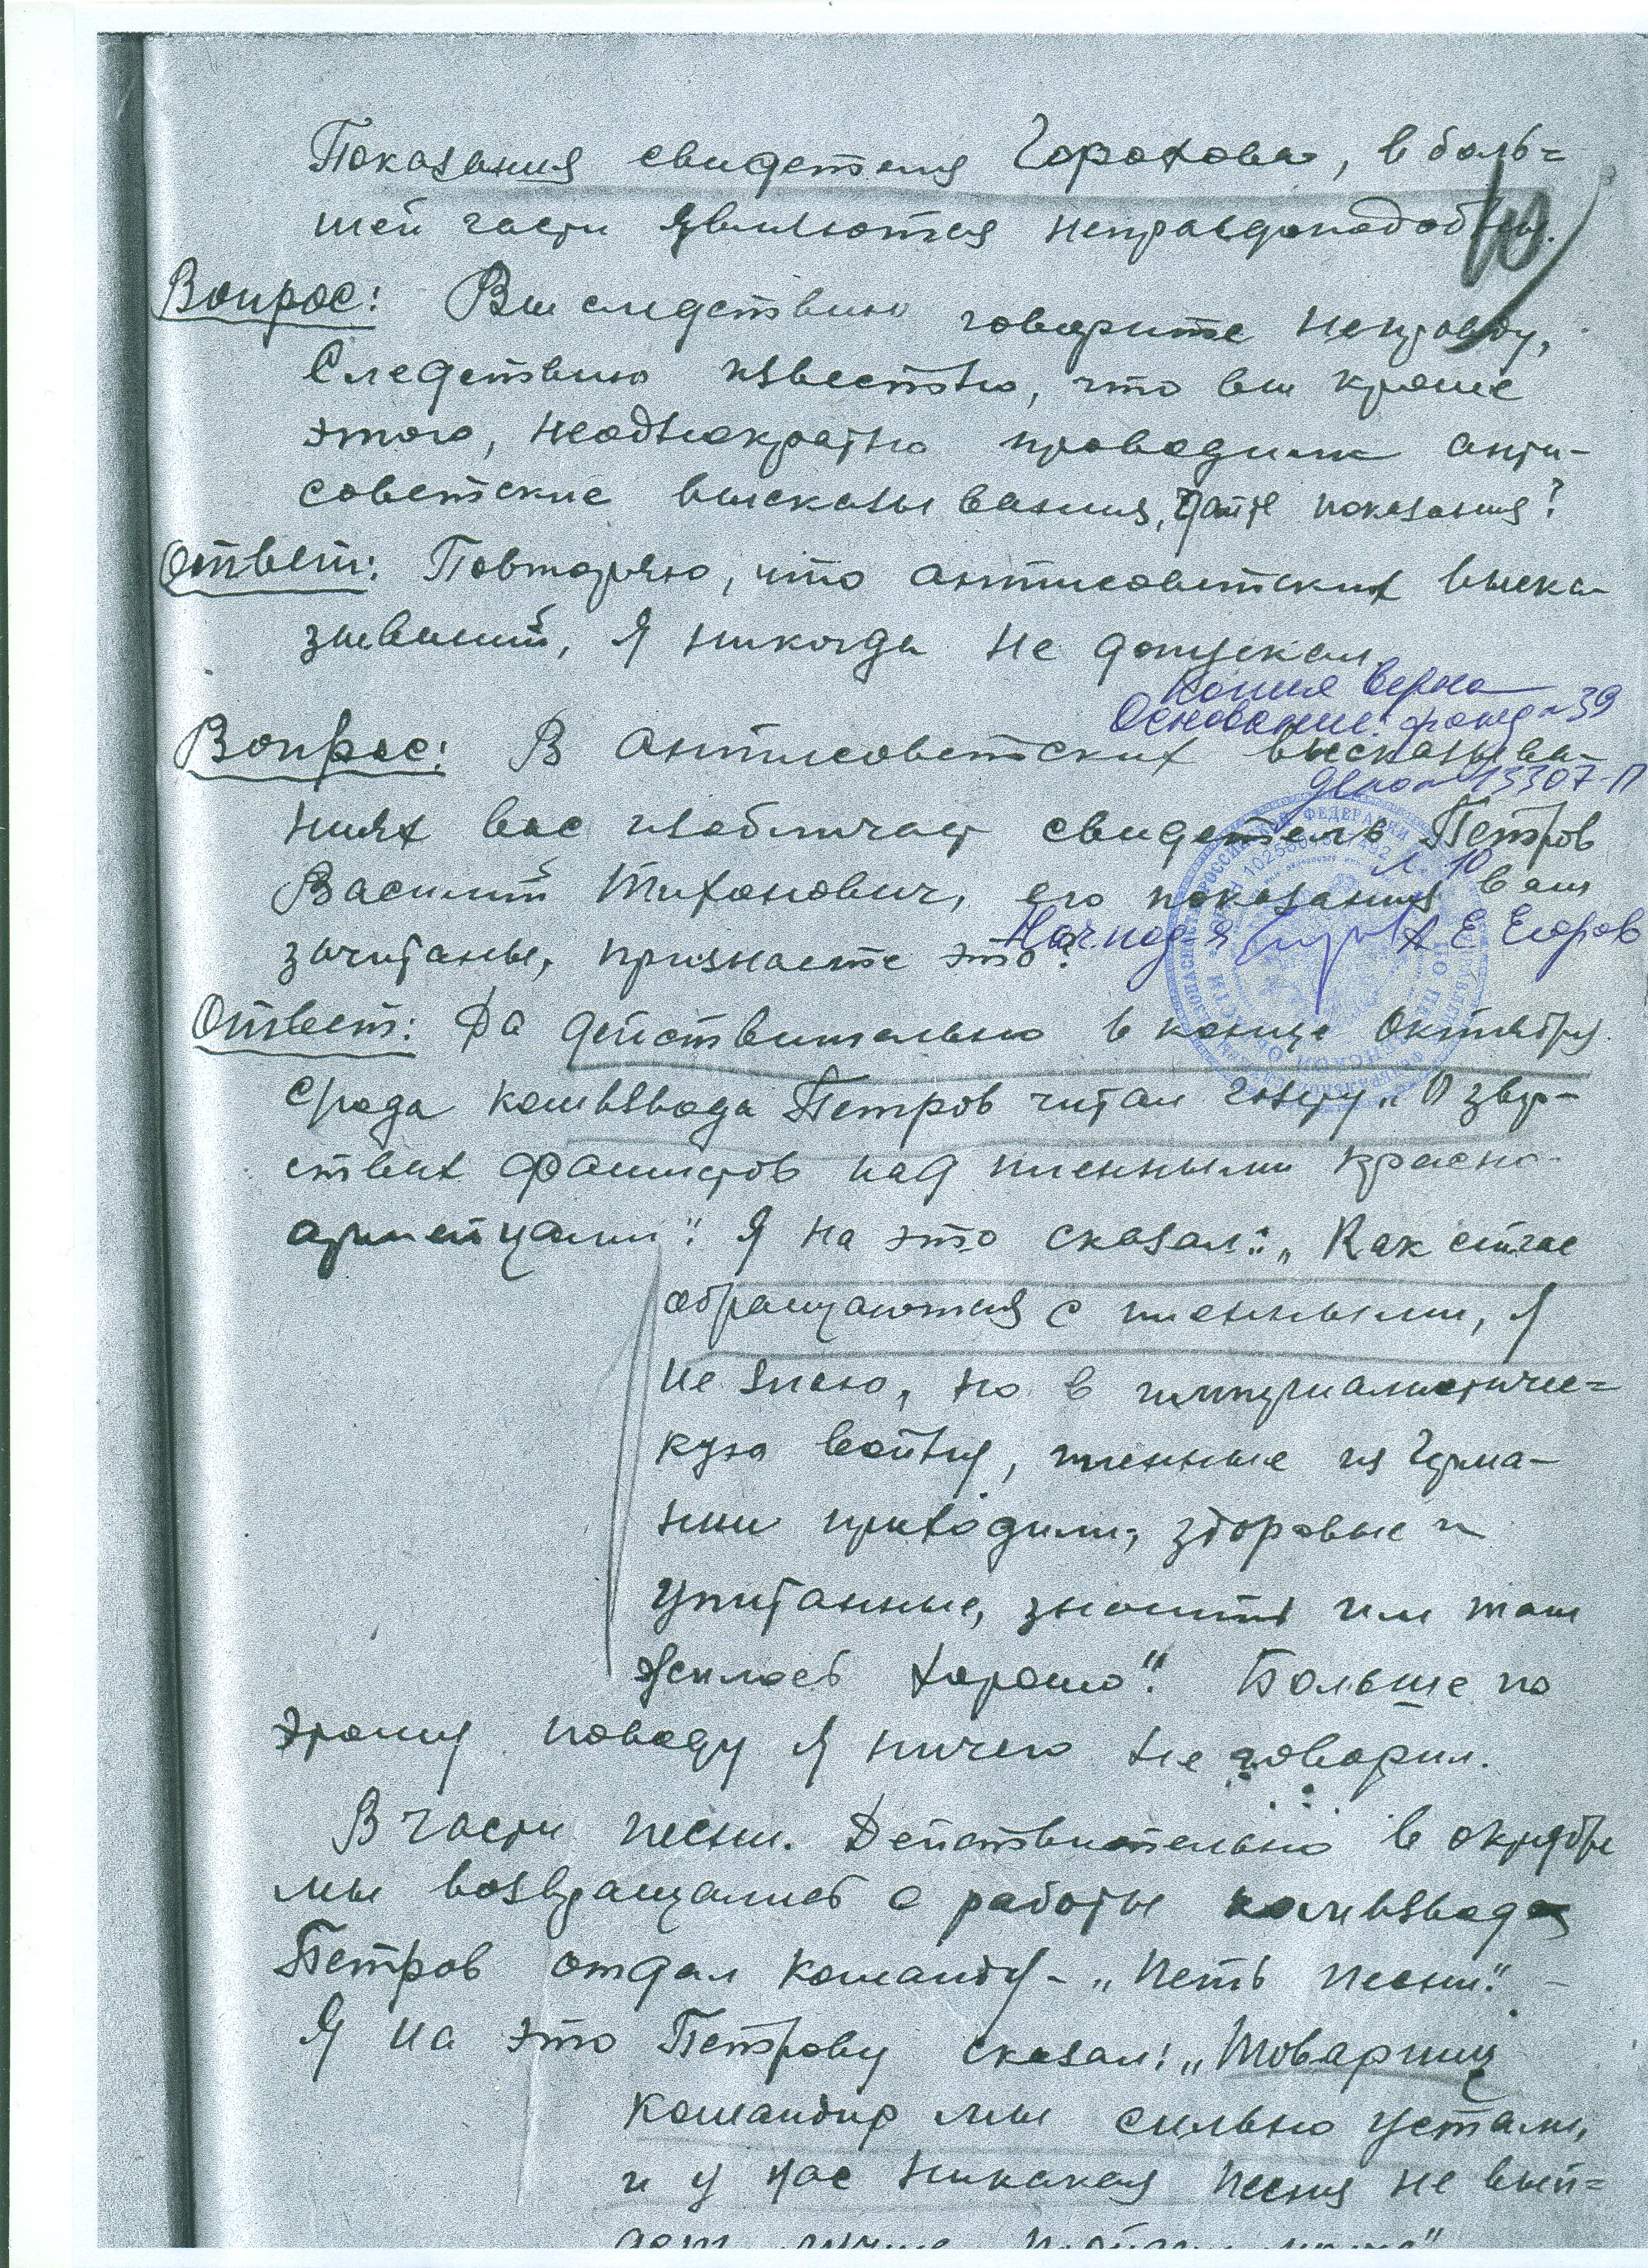 Показания свидетеля Горохова, в боль=
шей части являются неправдоподобны.
10
Вопрос: Вы следствию говорите неправду,
Следствию известно, что вы кроме
этого, неоднократно проводили анти-
советские высказывания, дайте показания?
Ответ: Повторяю, что антисоветских выска-
зываний, я никогда не допускал.
Копия верна
Основание: фонд 39
Вопрос: В антисоветских высказыва-
дело 15307-П
ниях вас изобличает свидетель Петров
л. 10
Василий Тихонович, его показания вам
Нач. под-я А Е Егоров
зачитаны, признаете это?
Ответ: Да действительно в конце Октября
с/года комвзвода Петров читал газету „О звер-
ствах фашистов над пленными красно-
армейцами". Я на это сказал: „Как сейчас
обращаются с пленными, я
не знаю, но в империалистичес=
кую войну, пленные из Герма-
нии приходили, здоровые и
упитанные, значит им там
жилось хорошо". Больше по
этому поводу я ничего не говорил.
В части песни. Действительно в октябре
мы возвращались с работы комвзвода
Петров отдал команду - „петь песни".
Я на это Петрову сказал: „Товарищ
командир мы сильно устали,
и у нас никакая песня не вый=
дет, лучше